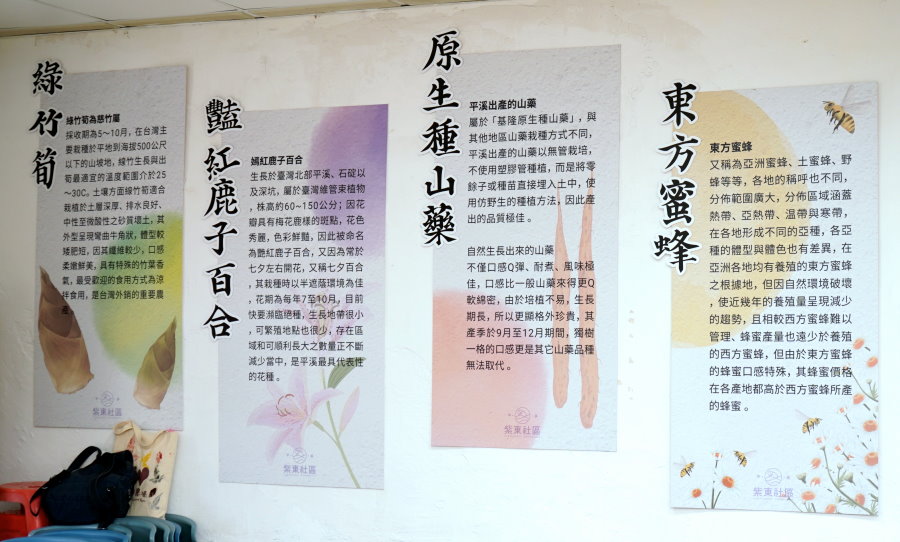 綠竹筍
綠竹筍為慈竹屬
採收期為5～10月，在台灣主
要栽種於平地到海拔500公尺
以下的山坡地，綠竹生長與出
筍最適宜的溫度範圍介於25
～30C。土壤方面綠竹筍適合
栽植於土層深厚、排水良好、
中性至微酸性之砂質壤土，其
外型呈現彎曲牛角狀，體型較
矮肥短，因其纖維較少，口感
柔嫩鮮美，具有特殊的竹葉香
氣，最受歡迎的食用方式為涼
拌食用，是台灣外銷的重要農
產。
紫東社區
豔紅鹿子百合
嫣紅鹿子百合
生長於臺灣北部平溪、石碇以
及深坑，屬於臺灣維管束植物
，株高約60~150公分；因花
瓣具有梅花鹿樣的斑點，花色
秀麗，色彩鮮豔，因此被命名
為艷紅鹿子百合，又因為常於
七夕左右開花，又稱七夕百合
，其栽種時以半遮蔭環境為佳
，花期為每年7至10月，目前
快要瀕臨絕種，生長地帶很小
，可繁殖地點也很少，存在區
域和可順利長大之數量正不斷
減少當中，是平溪最具代表性
的花種。
紫東社區
原生種山藥
平溪出產的山藥
屬於「基隆原生種山藥」，與
其他地區山藥栽種方式不同，
平溪出產的山藥以無管栽培，
不使用塑膠管種植，而是將零
餘子或種苗直接埋入土中，使
用仿野生的種植方法，因此產
出的品質極佳。
自然生長出來的山藥
不僅口感Q彈、耐煮、風味極
佳，口感比一般山藥來得更Q
軟綿密，由於培植不易，生長
期長，所以更顯格外珍貴，其
產季於9月至12月期間，獨樹
一格的口感更是其它山藥品種
無法取代。
紫東社區
東方蜜蜂
東方蜜蜂
又稱為亞洲蜜蜂、土蜜蜂、野
蜂等等，各地的稱呼也不同，
分佈範圍廣大，分佈區域涵蓋
熱帶、亞熱帶、溫帶與寒帶，
在各地形成不同的亞種，各亞
種的體型與體色也有差異，在
亞洲各地均有養殖的東方蜜蜂
之根據地，但因自然環境破壞
，使近幾年的養殖量呈現減少
的趨勢，且相較西方蜜蜂難以
管理、蜂蜜產量也遠少於養殖
的西方蜜蜂，但由於東方蜜蜂
的蜂蜜口感特殊，其蜂蜜價格
在各產地都高於西方蜜蜂所產
的蜂蜜。
紫東社區